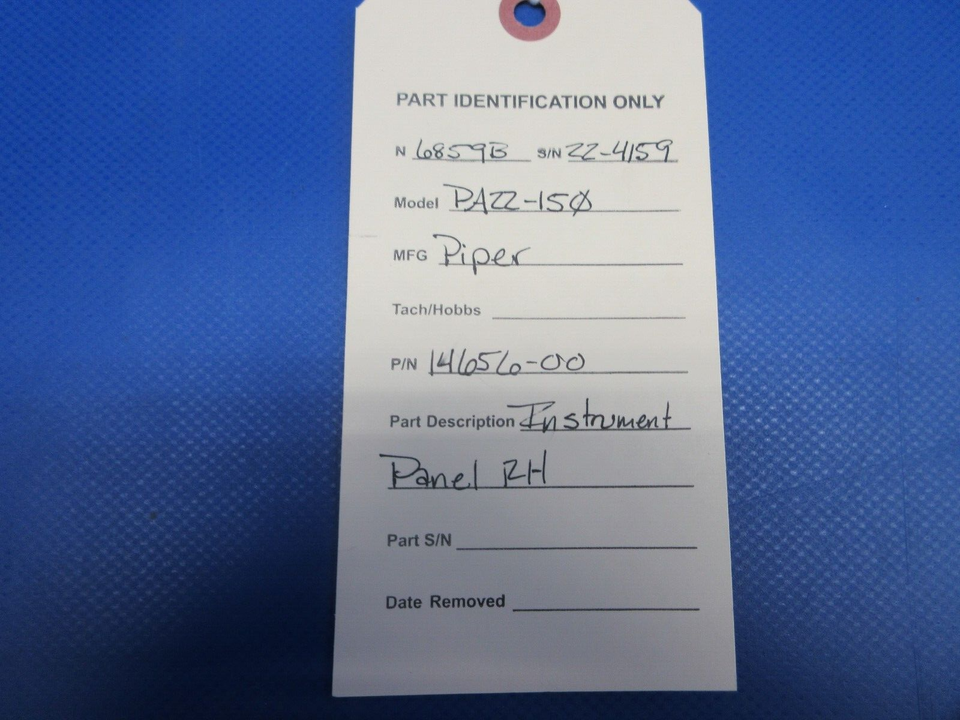 PART IDENTIFICATION ONLY
N 6859B S/N 22-4159
Model PA22-150
MFG Piper
Tach/Hobbs
P/N 14656-00
Part Description Instrument
Panel RH
Part S/N
Date Removed